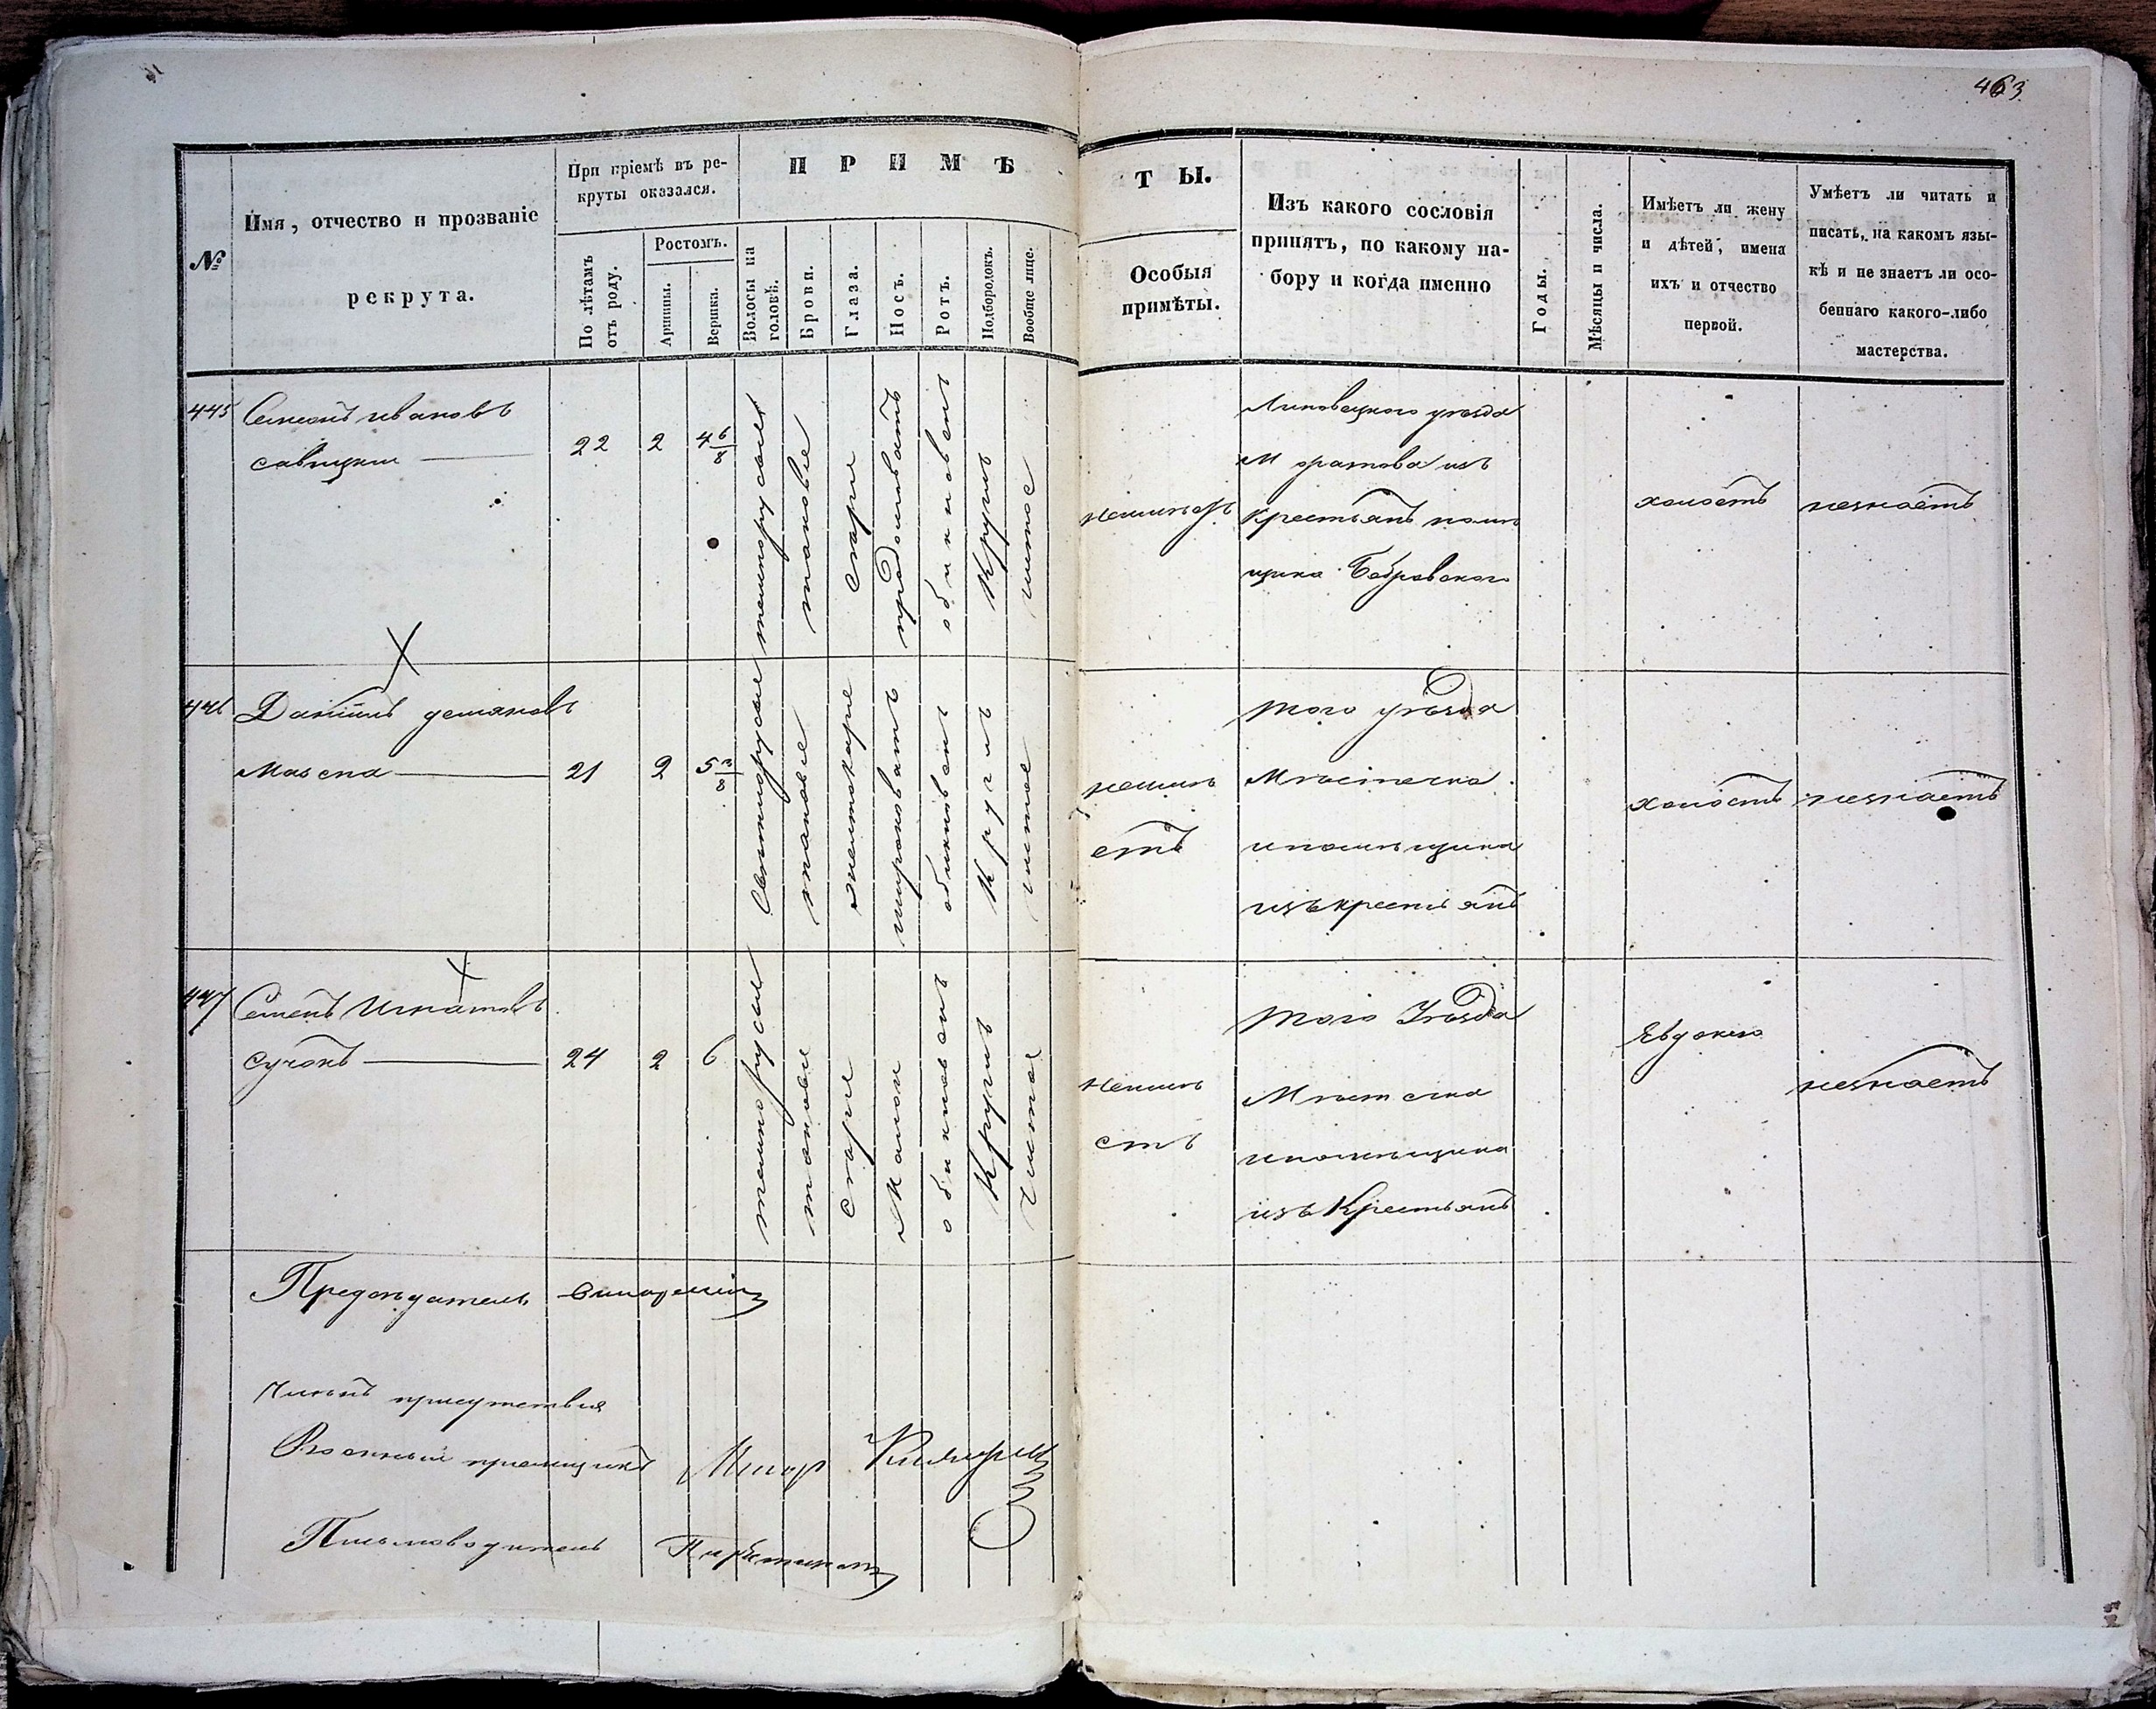 463
№
Имя, отчество и прозваніе
рекрута.
При пріемѣ въ ре-
круты оказался.
По лѣтамъ
отъ роду.
Ростомъ.
Аршины.
Вершка.
ПРИМѢ
Волосы на
головѣ.
Брови.
Глаза.
Носъ.
Ротъ.
Подбородокъ.
Вообще лице.
ТЫ.
Особыя
примѣты.
Изъ какого сословія
принятъ, по какому на-
бору и когда именно
Годы.
Мѣсяцы и числа.
Имѣетъ ли жену
и дѣтей, имена
ихъ и отчество
первой.
Умѣетъ ли читать и
писать, на какомъ язы-
кѣ и не знаетъ ли осо-
беннаго какого-либо
мастерства.
445 Семенъ ивановъ
савицкии
22 2 4 6/8
темнорусыя
таковые
сѣрые
продолговатъ
обикновенъ
круглъ
чистое
Липовецкого уезда
М
изъ
Крестьянъ помѣ
щика
холостъ
незнаетъ
446 Данiилъ демяновъ
Мазепа
21 2 5 3/8
Свѣтлорусые
таковые
широковатъ
обикновенъ
круглъ
чистое
неимѣ
етъ
того уѣзда
Мѣстечка
ипомѣщика
изъ крестьянъ
холостъ
незнаетъ
447 Семенъ Игнатовъ
сучокъ
24 2 6
темнорусые
таковые
сѣрые
Малой
обикновенъ
Круглъ
Чистое
Неимѣ
етъ
того Уѣзда
Мѣстечка
ипомѣщика
изъ Крестьянъ
Евдокию
незнаетъ
Председатель
Членъ присутствия
Военный приемщикъ
Маиор
Письмоводитель